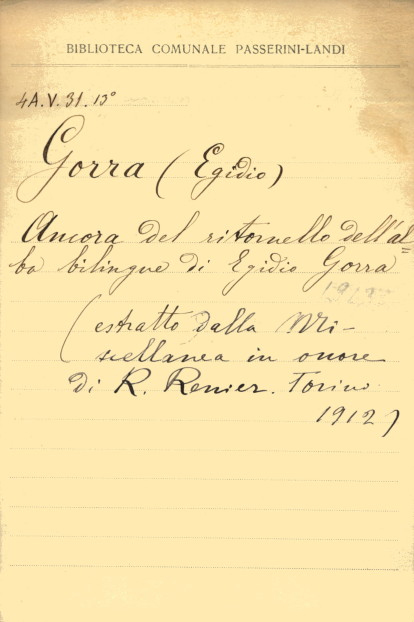 BIBLIOTECA COMUNALE PASSERINI-LANDI
4A.V.31.13°
Gorra (Egidio)
Ancora del ritornello dell'al=
ba bilingue di Egidio Gorra
(estratto dalla Mi-
scellanea in onore
di R. Renier. Torino
1912)